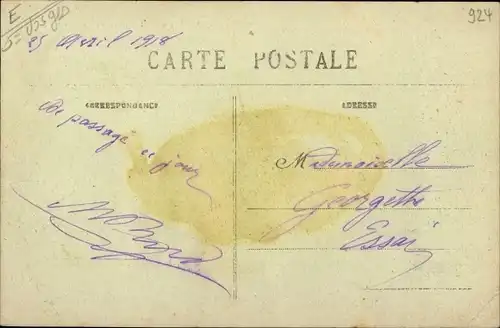 E
924
25 Avril 1918
CARTE POSTALE
CORRESPONDANCE
ADRESSE
De passage ce jour
Mademoiselle
Georgette
Essai